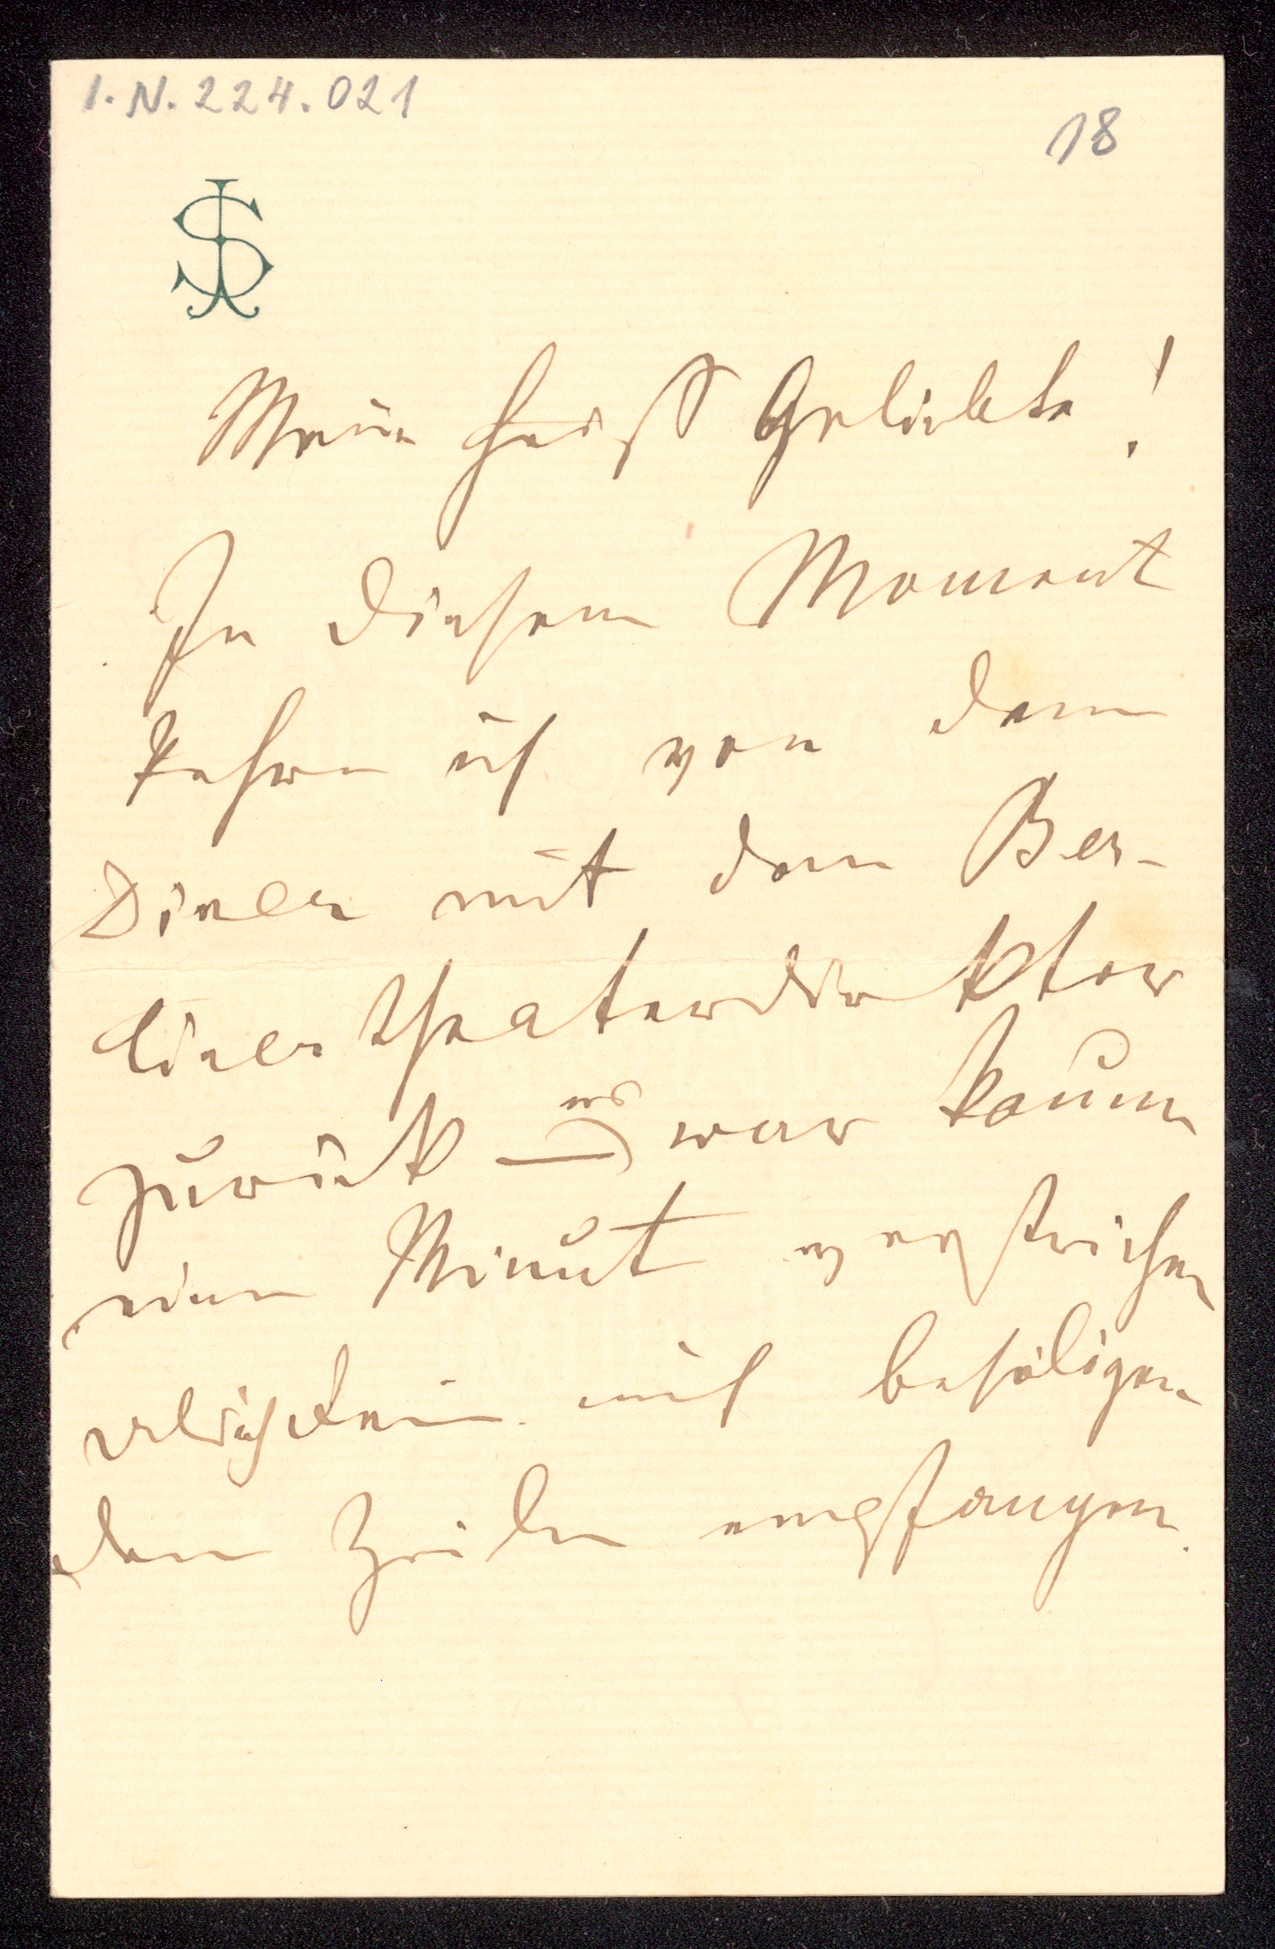 I.N. 224.021
18
JS
Meine heiß Geliebte!
In diesem Moment
kehre ich von dem
Diner mit dem Ber-
liner Theaterdirektor
zurück es war kaum
eine Minut verstrichen
mich beseligen-
den Zeilen empfangen.